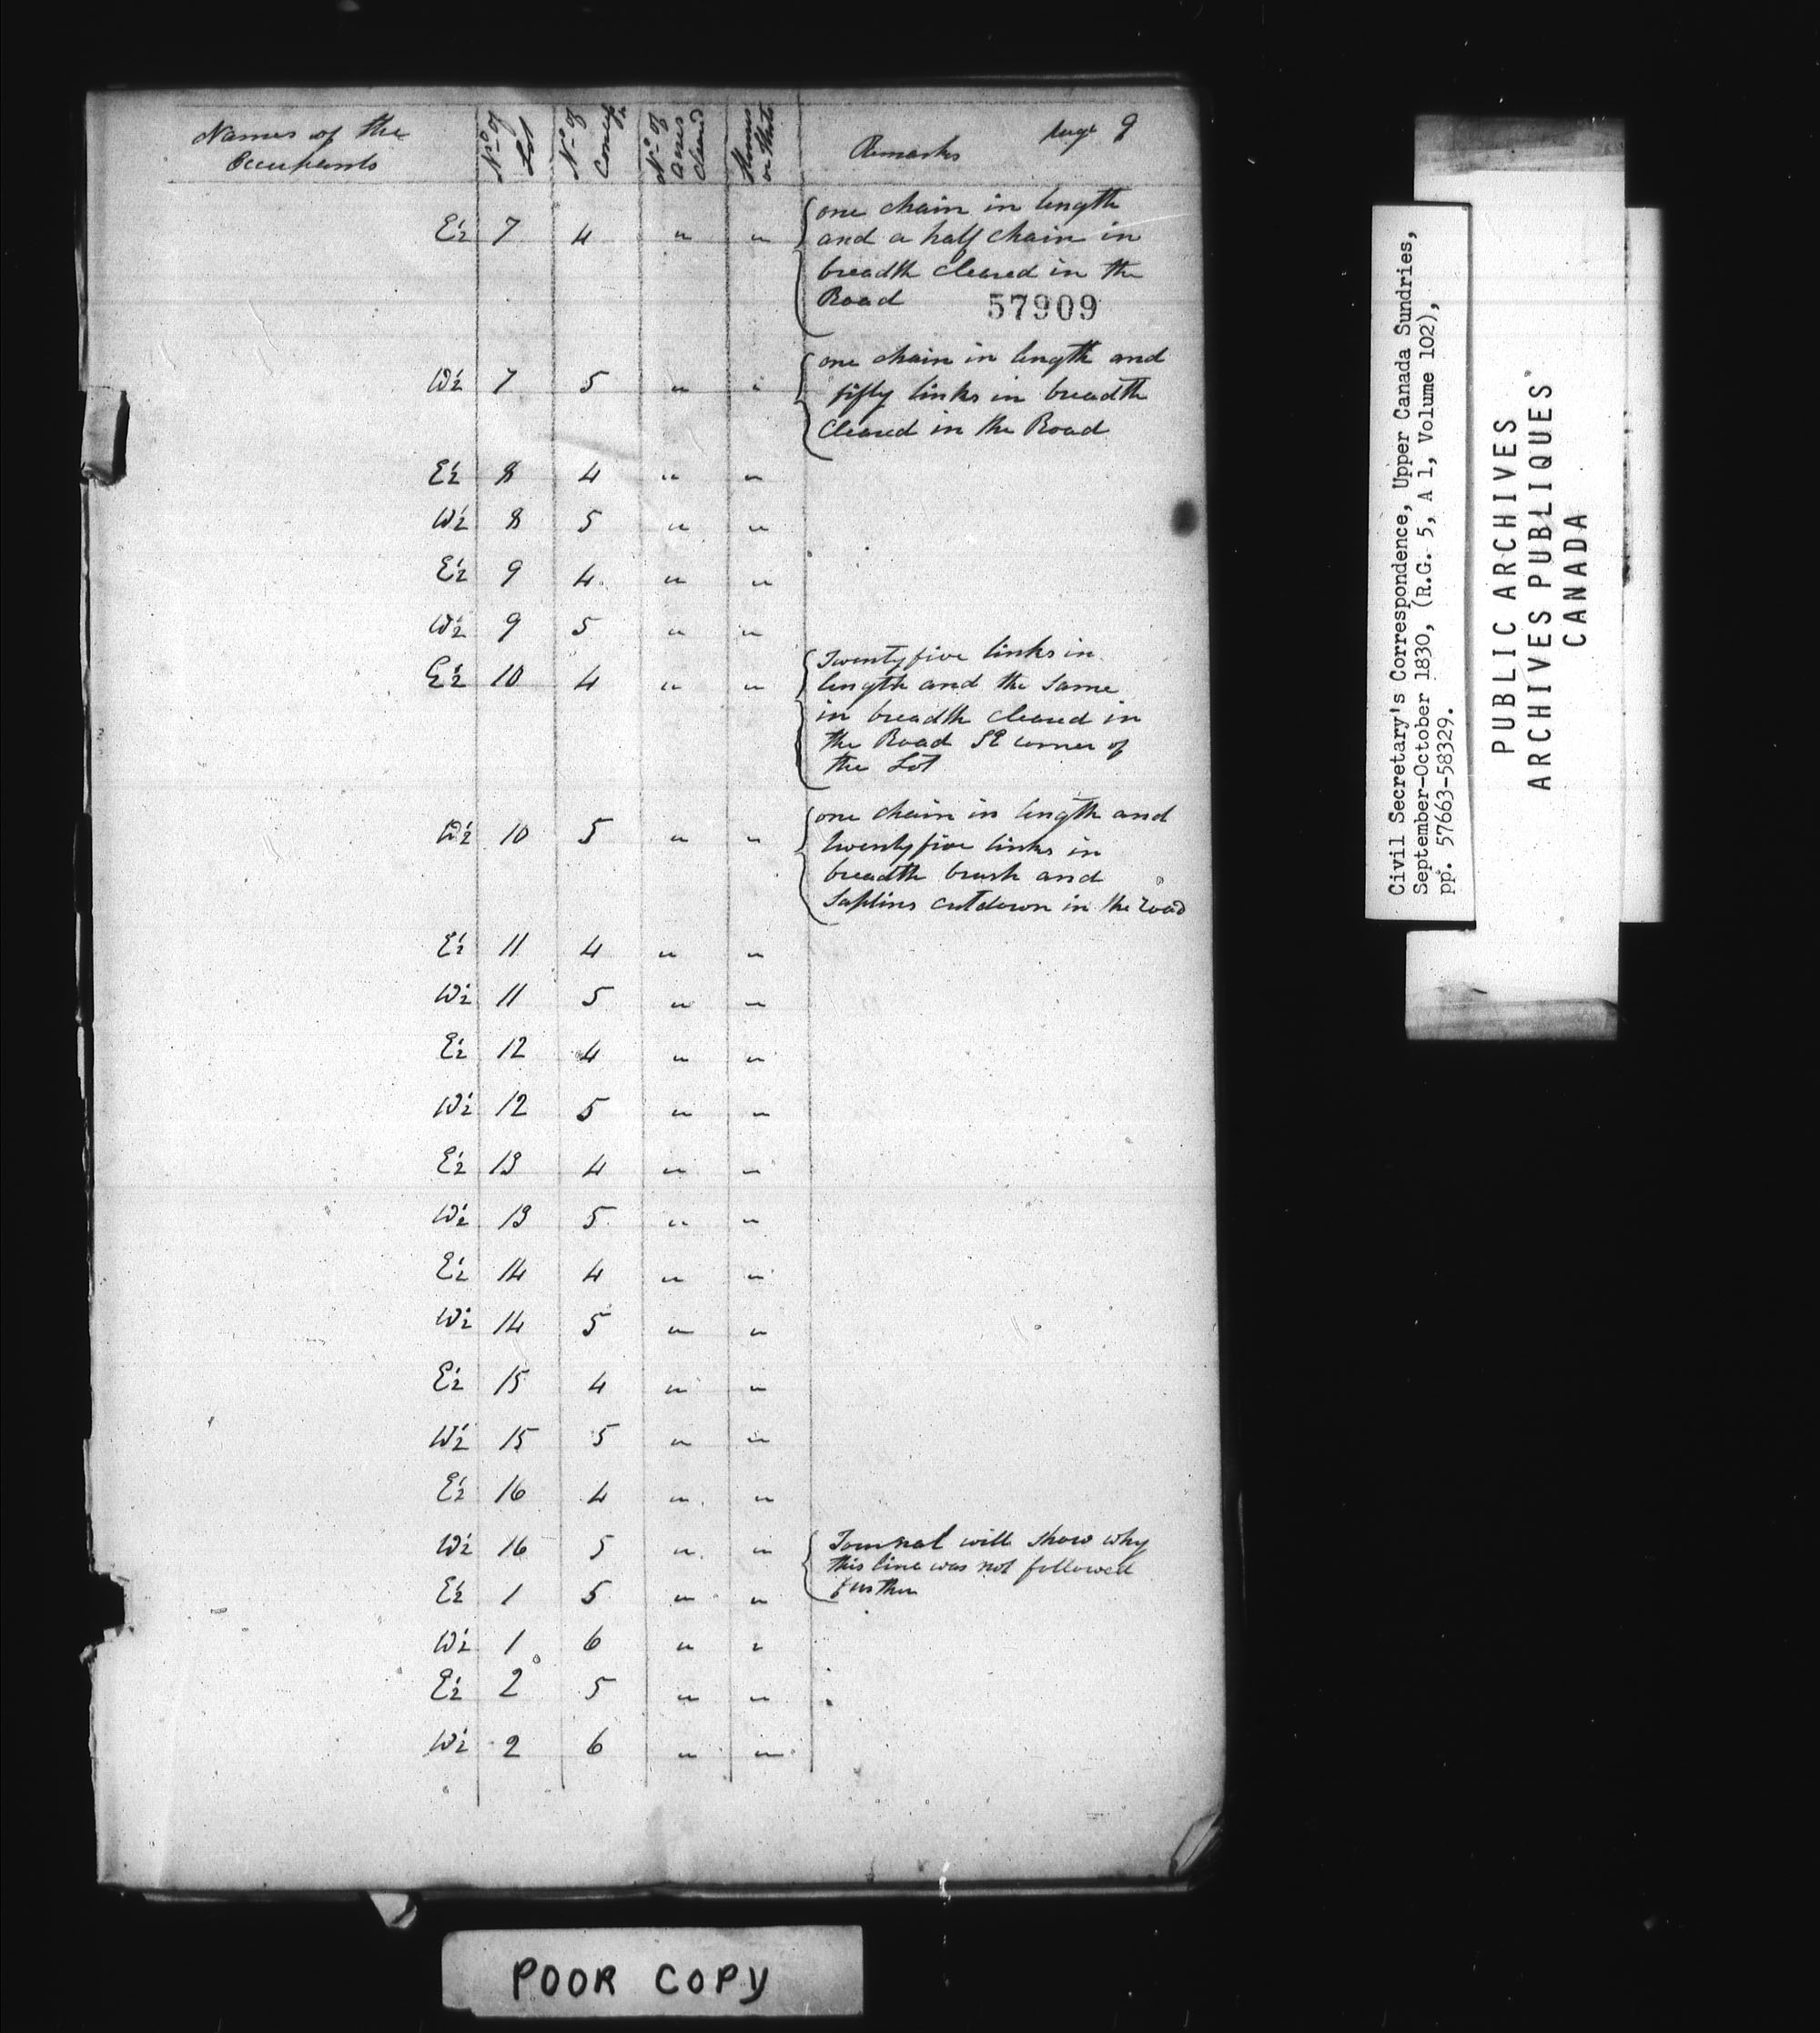 Names of the
Occupants
No of
Lot
No of
Conces
No of
acres
cleard
Houses
or Huts
Remarks
page 9
E ½ 7 4 " "
one chain in length
and a half chain in
breadth cleared in the
Road
57909
W ½ 7 5 " "
one chain in length and
fifty links in breadth
cleared in the Road
E ½ 8 4 " "
W ½ 8 5 " "
E ½ 9 4 " "
W ½ 9 5 " "
E ½ 10 4 " "
Twenty five links in
length and the same
in breadth cleared in
the Road SE corner of
the Lot
W ½ 10 5 " "
one chain in length and
twenty five links in
breadth brush and
saplins cutdown in the road
E ½ 11 4 " "
W ½ 11 5 " "
E ½ 12 4 " "
W ½ 12 5 " "
E ½ 13 4 " "
W ½ 13 5 " "
E ½ 14 4 " "
W ½ 14 5 " "
E ½ 15 4 " "
W ½ 15 5 " "
E ½ 16 4 " "
W ½ 16 5 " "
Journal will show why
this line was not followed
further
E ½ 1 5 " "
W ½ 1 6 " "
E ½ 2 5 " "
W ½ 2 6 " "
Civil Secretary's Correspondence, Upper Canada Sundries,
September-October 1830, (R.G. 5, A 1, Volume 102),
pp. 57663-58329.
PUBLIC ARCHIVES
ARCHIVES PUBLIQUES
CANADA
POOR COPY